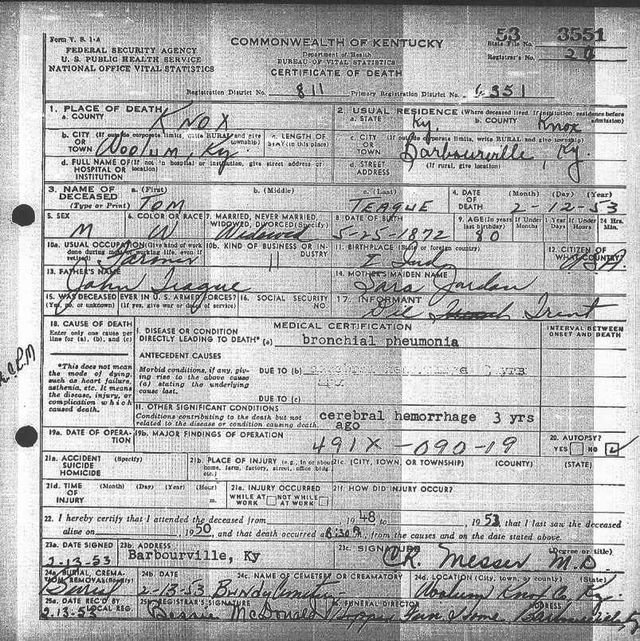 Form V. S. 1-A
FEDERAL SECURITY AGENCY
U. S. PUBLIC HEALTH SERVICE
NATIONAL OFFICE VITAL STATISTICS
COMMONWEALTH OF KENTUCKY
Department of Health
BUREAU OF VITAL STATISTICS
CERTIFICATE OF DEATH
53 3551
State File No.
Registrar's No. 20
Registration District No. 811 Primary Registration District No. 6351
1. PLACE OF DEATH
a. COUNTY KNOX
b. CITY (If outside corporate limits, write RURAL and give township)
OR
TOWN Ky
c. LENGTH OF STAY (in this place)
d. FULL NAME OF (If not in hospital or institution, give street address or location)
HOSPITAL OR
INSTITUTION
2. USUAL RESIDENCE (Where deceased lived. If institution: residence before admission)
a. STATE Ky. b. COUNTY Knox
c. CITY (If outside corporate limits, write RURAL and give township)
OR
TOWN Barbourville, Ky
d. STREET (If rural, give location)
ADDRESS
3. NAME OF DECEASED
(Type or Print)
a. (First) TOM
b. (Middle)
c. (Last) TEAGUE
4. DATE OF DEATH (Month) (Day) (Year)
2-12-53
5. SEX M
6. COLOR OR RACE W
7. MARRIED, NEVER MARRIED, WIDOWED, DIVORCED (Specify) Widowed
8. DATE OF BIRTH 5-25-1872
9. AGE (In years last birthday) 80
If Under 1 Year If Under 24 Hrs.
10a. USUAL OCCUPATION (Give kind of work done during most of working life, even if retired) Farmer
10b. KIND OF BUSINESS OR INDUSTRY 11
11. BIRTHPLACE (State or foreign country)
12. CITIZEN OF WHAT COUNTRY?
13. FATHER'S NAME
John Teague
14. MOTHER'S MAIDEN NAME
Sara Jordan
15. WAS DECEASED EVER IN U. S. ARMED FORCES?
(Yes, no, or unknown) (If yes, give war or dates of service)
16. SOCIAL SECURITY NO.
17. INFORMANT
Trent
18. CAUSE OF DEATH
Enter only one cause per line for (a), (b), and (c)
*This does not mean the mode of dying, such as heart failure, asthenia, etc. It means the disease, injury, or complication which caused death.
MEDICAL CERTIFICATION
INTERVAL BETWEEN ONSET AND DEATH
I. DISEASE OR CONDITION
DIRECTLY LEADING TO DEATH* (a) bronchial pheumonia
ANTECEDENT CAUSES
Morbid conditions, if any, giving rise to the above cause (a) stating the underlying cause last.
DUE TO (b) yrs
DUE TO (c)
II. OTHER SIGNIFICANT CONDITIONS
Conditions contributing to the death but not related to the disease or condition causing death.
cerebral hemorrhage 3 yrs
ago
19a. DATE OF OPERATION
19b. MAJOR FINDINGS OF OPERATION
491X-090-19
20. AUTOPSY?
YES NO
21a. ACCIDENT SUICIDE HOMICIDE (Specify)
21b. PLACE OF INJURY (e.g., in or about home, farm, factory, street, office bldg., etc.)
21c. (CITY, TOWN, OR TOWNSHIP) (COUNTY) (STATE)
21d. TIME OF INJURY (Month) (Day) (Year) (Hour)
m.
21e. INJURY OCCURRED
WHILE AT WORK NOT WHILE AT WORK
21f. HOW DID INJURY OCCUR?
22. I hereby certify that I attended the deceased from 1948 1953 that I last saw the deceased
alive on 1950, and that death occurred from the causes and on the date stated above.
23a. DATE SIGNED
2-13-53
23b. ADDRESS
Barbourville, Ky
23c. SIGNATURE (Degree or title)
Messer M.D.
24a. BURIAL, CREMATION, REMOVAL (Specify)
Burial
24b. DATE
2-13-53
24c. NAME OF CEMETERY OR CREMATORY
24d. LOCATION (City, town, county) (State)
Knox Co Ky.
25a. DATE REC'D BY LOCAL REG.
2-13-53
25b. REGISTRAR'S SIGNATURE
McDonald
FUNERAL DIRECTOR ADDRESS
Home Barbourville